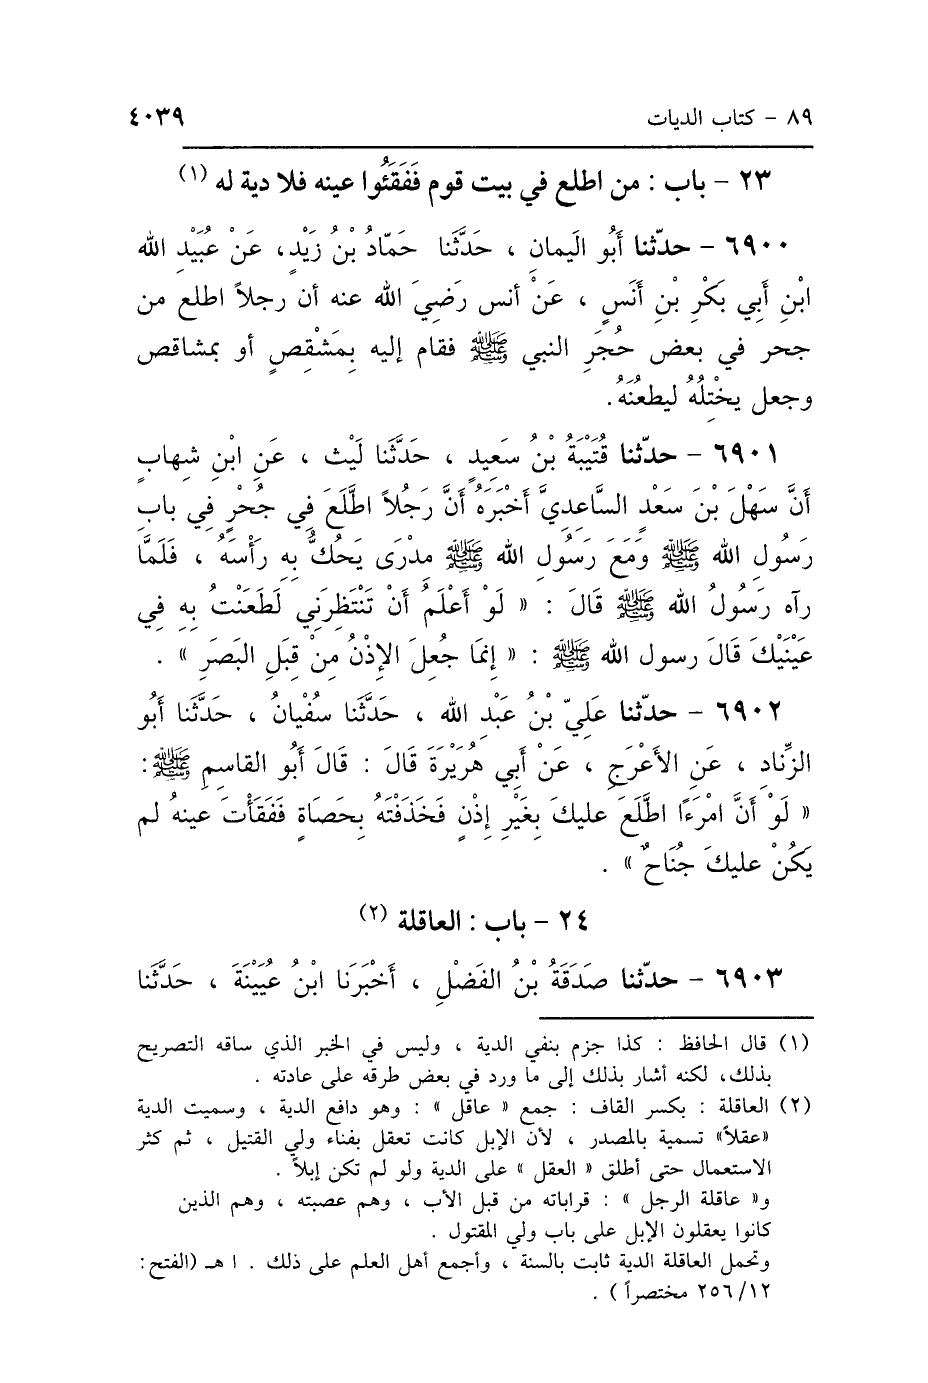 ٨٩ - كتاب الديات ٤٠٣٩
٢٣ - باب : من اطلع في بيت قوم فَفَقَئُوا عينه فلا دية له (١)
٦٩٠٠ - حدّثنا أَبُو اليَمانِ ، حَدَّثَنا حَمّادُ بْنُ زَيْدٍ، عَنْ عُبَيْدِ الله
ابْنِ أَبي بَكْرِ بْنِ أَنَسٍ ، عَنْ أنس رَضيَ الله عنه أن رجلاً اطلع من
جحر في بعض حُجَرِ النبي ﷺ فقام إليه بِمَشْقِصٍ أو بمشاقص
وجعل يخْتِلُهُ ليطعُنَهُ.
٦٩٠١ - حدّثنا قُتَيْبَةُ بْنُ سَعيدٍ ، حَدَّثَنا لَيْث ، عَنِ ابْنِ شِهابٍ
أَنَّ سَهْلَ بْنَ سَعْدٍ السَّاعِديَّ أَخْبَرَهُ أَنَّ رَجُلاً اطلَّعَ فِي جُحْرٍ فِي بابِ
رَسُولِ الله ﷺ وَمَعَ رَسُولِ الله ﷺ مِدْرَى يَحُكُّ بِهِ رَأْسَهُ ، فَلَمَّا
رآه رَسُولُ الله ﷺ قَالَ : « لَوْ أَعْلَمُ أَنْ تَنْتَظِرَنِي لَطَعَنْتُ بِهِ فِي
عَيْنَيْكَ قَالَ رسول الله ﷺ : « إِنمَا جُعِلَ الإِذْنُ مِنْ قِبَلِ البَصَرِ » .
٦٩٠٢ - حدّثنا عَلَيّ بْنُ عَبْدِ الله ، حَدَّثَنا سُفْيانُ ، حَدَّثَنا أَبُو
الزِّنادِ ، عَنِ الأَعْرَجِ ، عَنْ أَبِي هُرَيْرَةَ قَالَ : قَالَ أَبُو القاسِمِ ﷺ:
« لَوْ أَنَّ امْرَءًا اطلَّعَ عليكَ بِغَيْرِ إِذْنٍ فَخَذَفْتَهُ بِحَصَاةٍ فَفَقَأْتَ عينهُ لم
يَكُنْ عليكَ جُنَاحٌ » .
٢٤ - باب : العاقلة (٢)
٦٩٠٣ - حدّثنا صَدَقَةُ بْنُ الفَضْلِ ، أَخْبَرَنا ابْنُ عُيَيْنَةَ ، حَدَّثَنا
(١) قال الحافظ : كذا جزم بنفي الدية ، وليس في الخبر الذي ساقه التصريح
بذلك، لكنه أشار بذلك إلى ما ورد في بعض طرقه على عادته .
(٢) العاقلة : بكسر القاف : جمع « عاقل » : وهو دافع الدية ، وسميت الدية
«عقلاً» تسمية بالمصدر ، لأن الإبل كانت تعقل بفناء ولي القتيل ، ثم كثر
الاستعمال حتى أطلق « العقل » على الدية ولو لم تكن إبلاً .
و« عاقلة الرجل » : قراباته من قبل الأب ، وهم عصبته ، وهم الذين
كانوا يعقلون الإبل على باب ولي المقتول .
وتحمل العاقلة الدية ثابت بالسنة ، وأجمع أهل العلم على ذلك . اهـ (الفتح:
٢٥٦/١٢ مختصراً ) .